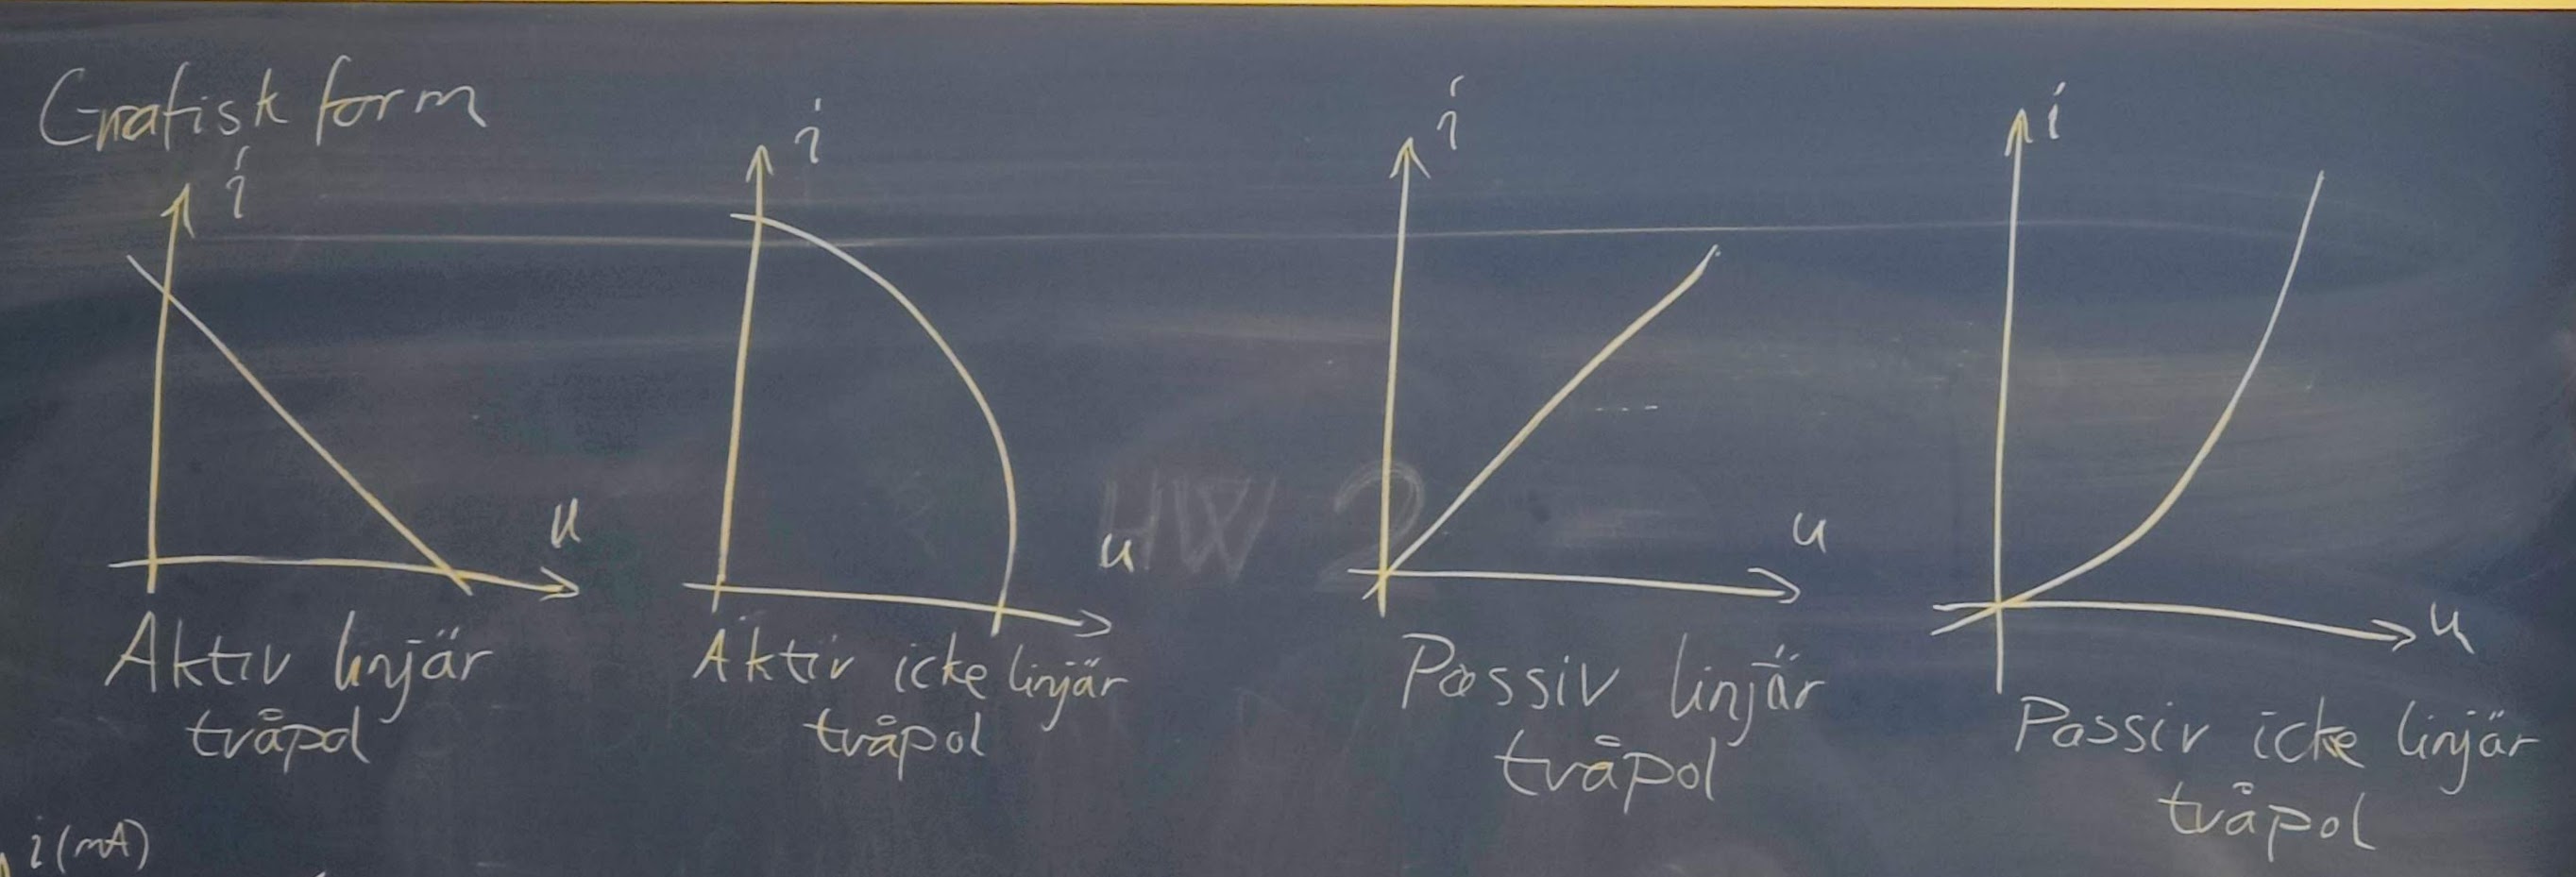 Grafisk form
i
u
Aktiv linjär
tvåpol
i
u
Aktiv icke linjär
tvåpol
HW 2
i
u
Passiv linjär
tvåpol
i
u
Passiv icke linjär
tvåpol
i (mA)